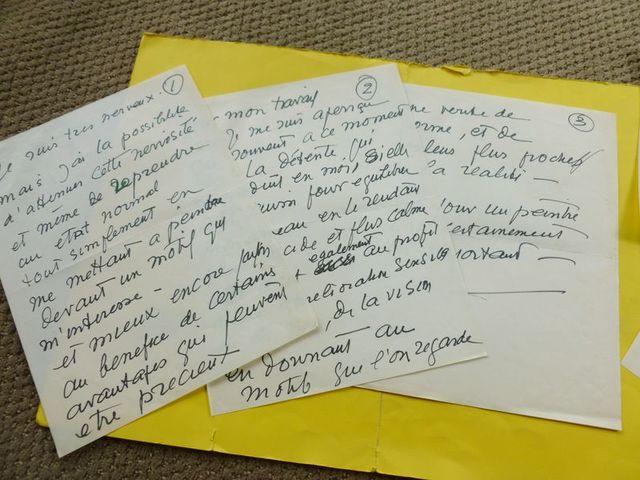 1
Je suis très nerveux.
mais j'ai la possibilité
d'attenuer cette nervosité
et même de reprendre
un etat normal
tout simplement en
me mettant a peindre
devant un motif qui
m'interesse -
et mieux encore parfois
au benefice de certains
avantages qui peuvent
etre precieux
2
mon travail
Je me suis aperçu
souvent a ce moment
la détente qui
duit en moi,
pour equilibrer
eau en le rendant
cide et plus calme
également
au profit
elioration sensible
de la vision
en donnant au
motif que l'on regarde
3
ne verité de
orme, et de
leurs plus proches
a realité -
our un peintre
ertainement
ortant -